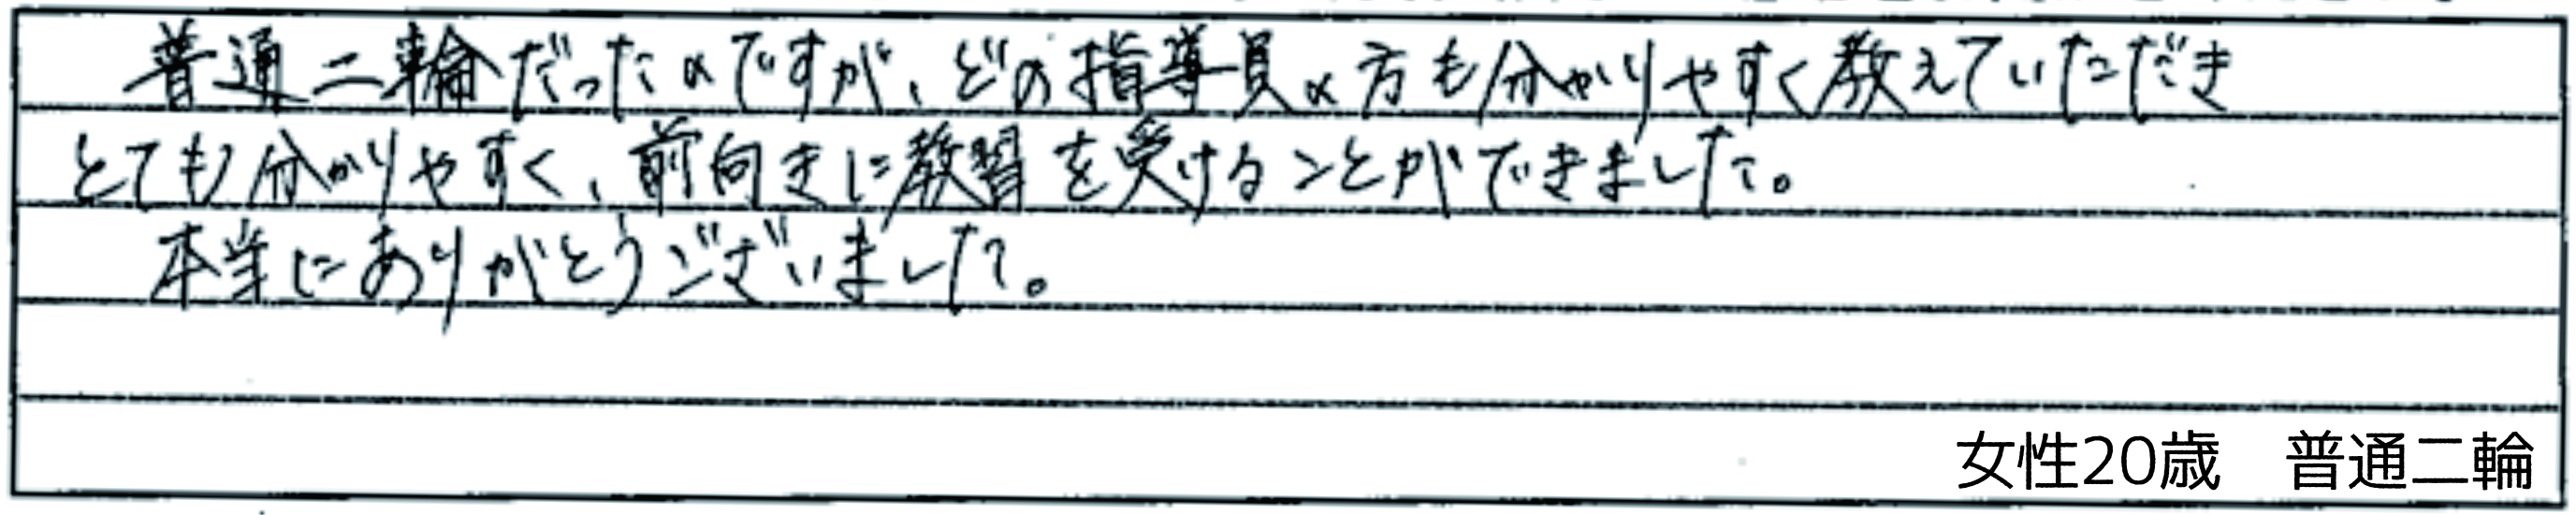 普通二輪だったのですが、どの指導員の方も分かりやすく教えていただき
とても分かりやすく、前向きに教習を受けることができました。
本当にありがとうございました。
女性20歳　普通二輪